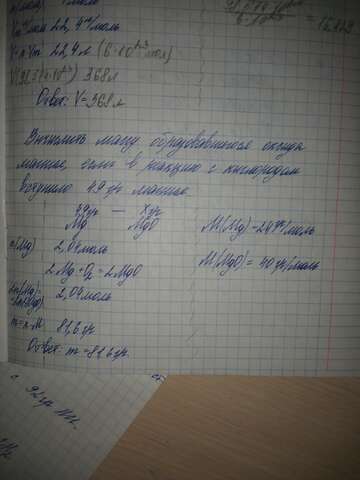 1 моль
22,4 л/моль
V=n·Vm 22,4 л (6·10²³ мол)
368 л
Ответ: V=368 л
Вычислить массу образовавшегося оксида
магния, если в реакцию с кислородом
вступило 49 гр магния.
49 гр — X гр
Mg MgO M(Mg)=24 гр/моль
n(Mg) 2,04 моль
2Mg+O₂=2MgO M(MgO)=40 гр/моль
2n(Mg)=
2n(MgO) 2,04 моль
m=n·M 81,6 гр
Ответ: m=81,6 гр.
92 гр